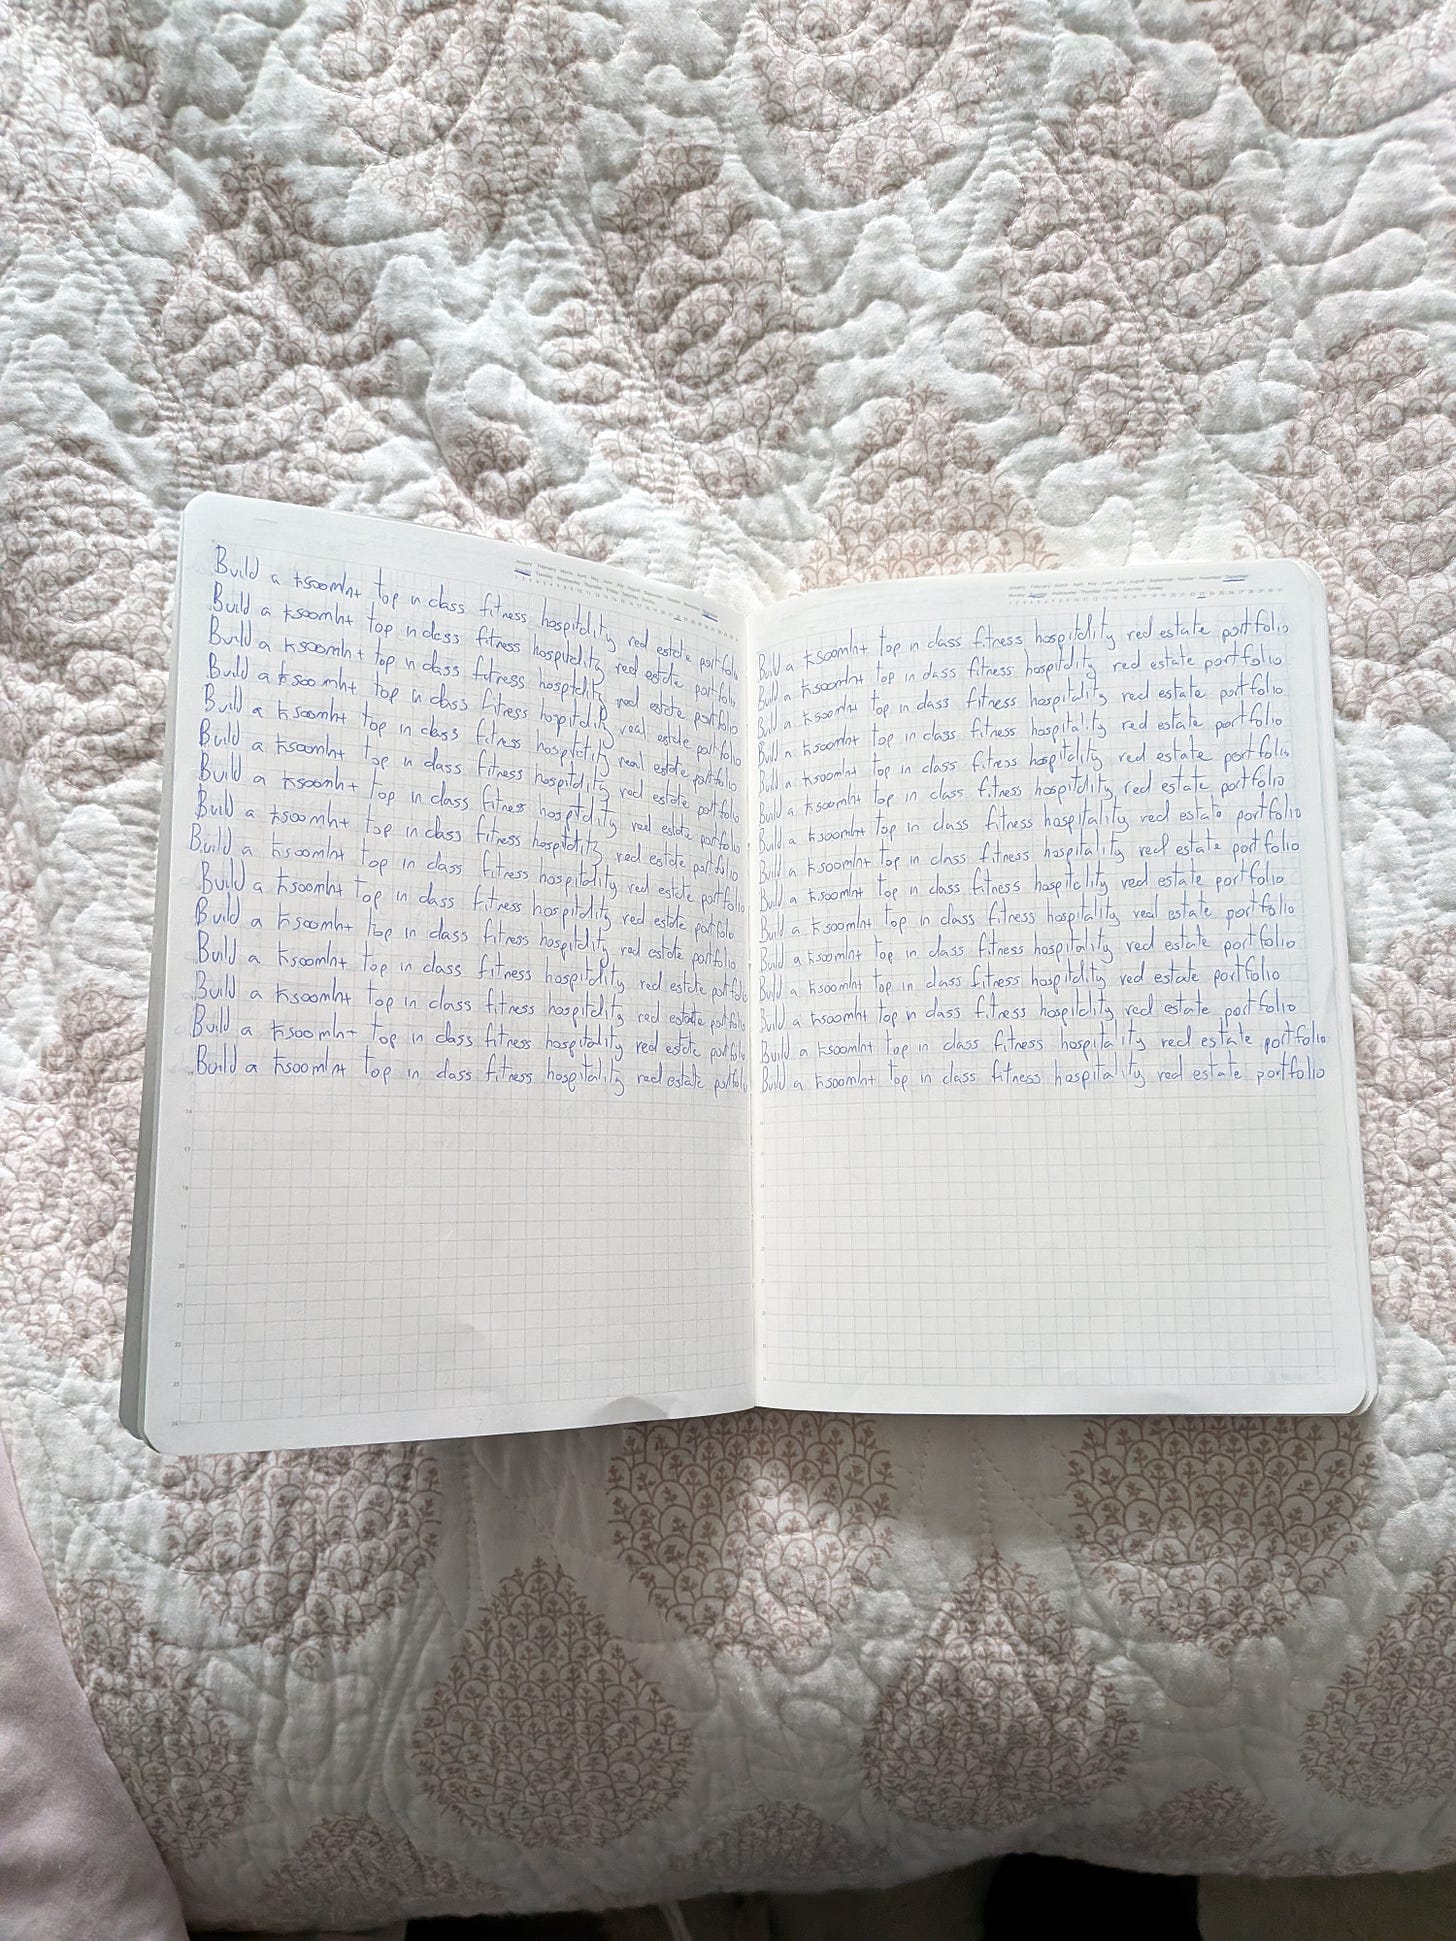 Build a 500mln+ top in class fitness hospitality real estate portfolio
Build a 500mln+ top in class fitness hospitality real estate portfolio
Build a 500mln+ top in class fitness hospitality real estate portfolio
Build a 500mln+ top in class fitness hospitality real estate portfolio
Build a 500mln+ top in class fitness hospitality real estate portfolio
Build a 500mln+ top in class fitness hospitality real estate portfolio
Build a 500mln+ top in class fitness hospitality real estate portfolio
Build a 500mln+ top in class fitness hospitality real estate portfolio
Build a 500mln+ top in class fitness hospitality real estate portfolio
Build a 500mln+ top in class fitness hospitality real estate portfolio
Build a 500mln+ top in class fitness hospitality real estate portfolio
Build a 500mln+ top in class fitness hospitality real estate portfolio
Build a 500mln+ top in class fitness hospitality real estate portfolio
Build a 500mln+ top in class fitness hospitality real estate portfolio
Build a 500mln+ top in class fitness hospitality real estate portfolio
Build a 500mln+ top in class fitness hospitality real estate portfolio
Build a 500mln+ top in class fitness hospitality real estate portfolio
Build a 500mln+ top in class fitness hospitality real estate portfolio
Build a 500mln+ top in class fitness hospitality real estate portfolio
Build a 500mln+ top in class fitness hospitality real estate portfolio
Build a 500mln+ top in class fitness hospitality real estate portfolio
Build a 500mln+ top in class fitness hospitality real estate portfolio
Build a 500mln+ top in class fitness hospitality real estate portfolio
Build a 500mln+ top in class fitness hospitality real estate portfolio
Build a 500mln+ top in class fitness hospitality real estate portfolio
Build a 500mln+ top in class fitness hospitality real estate portfolio
Build a 500mln+ top in class fitness hospitality real estate portfolio
Build a 500mln+ top in class fitness hospitality real estate portfolio
Build a 500mln+ top in class fitness hospitality real estate portfolio
Build a 500mln+ top in class fitness hospitality real estate portfolio